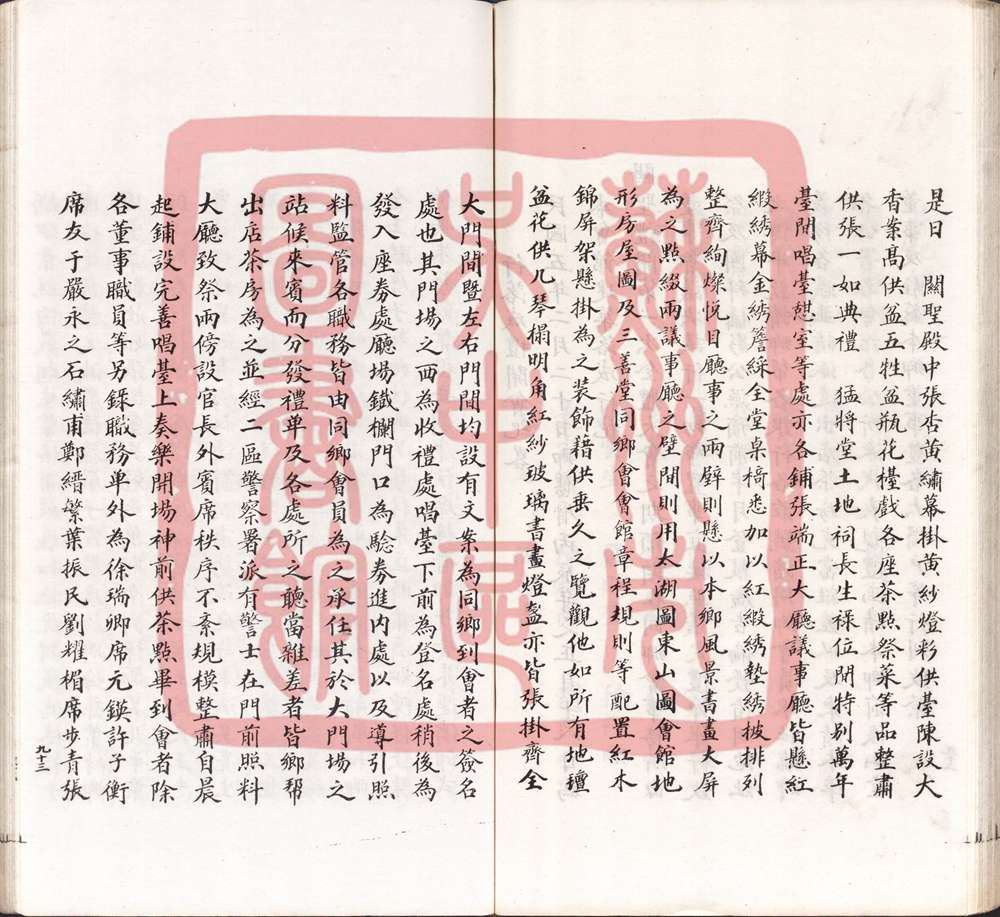 是日　關聖殿中張杏黃繡幕掛黃紗燈彩供臺陳設大
香案高供盆五牲盆瓶花檯戲各座茶點祭菜等品整肅
供張一如典禮　猛將堂土地祠長生祿位閒特別萬年
臺閒唱臺憇室等處亦各鋪張端正大廳議事廳皆懸紅
緞綉幕金綉簷綵全堂桌椅悉加以紅緞綉墊綉披排列
整齊絢燦悅目廳事之兩壁則懸以本鄉風景書畫大屏
為之點綴兩議事廳之壁閒則用太湖圖東山圖會館地
形房屋圖及三善堂同鄉會會館章程規則等配置紅木
錦屏架懸掛為之裝飾藉供垂久之覽觀他如所有地壇
盆花供几琴榻明角紅紗玻璃書畫燈盞亦皆張掛齊全
大門閒暨左右門閒均設有文案為同鄉到會者之簽名
處也其門場之西為收禮處唱臺下前為登名處稍後為
發入座券處廳場鐵欄門口為驗券進內處以及導引照
料監管各職務皆由同鄉會員為之承任其於大門場之
站候來賓而分發禮單及各處所之聽當雜差者皆鄉幫
出店茶房為之並經二區警察署派有警士在門前照料
大廳致祭兩傍設官長外賓席秩序不紊規模整肅自晨
起鋪設完善唱臺上奏樂開場神前供茶點畢到會者除
各董事職員等另錄職務單外為徐瑞卿席元鍈許子衡
席友于嚴永之石繡甫鄭縉繁葉振民劉耀楣席步青張
九十三
蘇州市
吳中區
圖書館